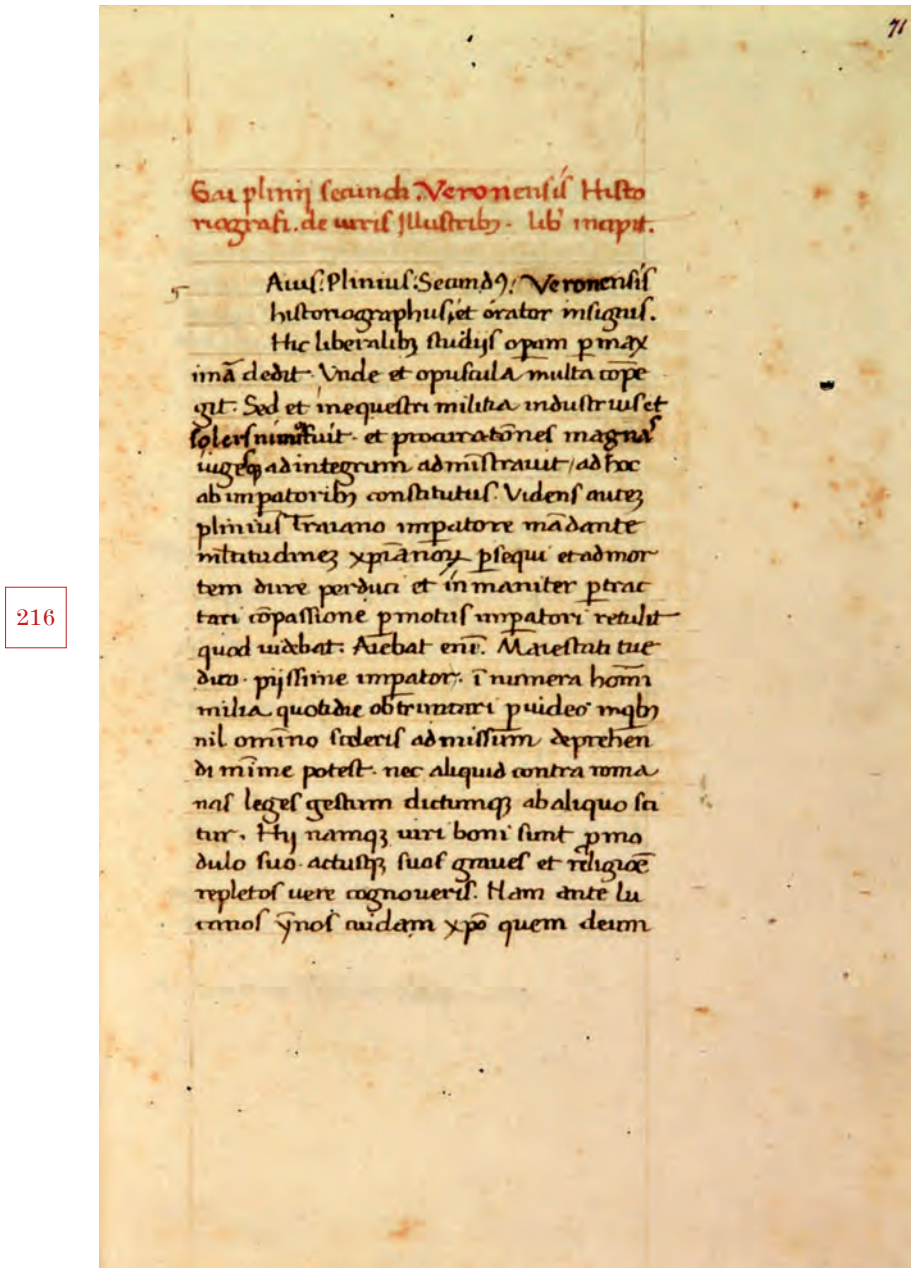 71
Gai plinij secundi Veronensis Histo
riografi. de uiris Jllustribꝫ. lib' incipit.
Aius: Plinius: Secundꝰ: Veronensis
historiographus, et orator insignis.
Hic liberalibꝫ studijs opam ꝑ max
imā dedit. Vnde et opuscula multa cōpe
git. Sed et inequestri militia industrius et
solers nimis fuit. et procuratōnes magnas
iugesqꝫ ad integrum admīstrauit / ad hoc
ab impatoribꝫ constitutus. Videns auteꝫ
plinius Traiano impatore mādante
mltitudineꝫ xp̄ianoꝝ ꝑsequi et ad mor
tem dire perduci et in maniter ptrac
tari cōpassione ꝑmotus impatori retulit
quod uidebat. Aiebat eni. Maiestati tue
dico. pijssime impator. ī numera homī
milia quotidie obtruncari puideo inqbꝫ
nil omīno sceleris admissum deprehen
di mīme potest. nec aliquid contra roma
nas leges gestum dictumqꝫ ab aliquo sci
tur. Hij namqꝫ uiri boni sunt ꝓ mo
dulo suo. actusqꝫ suos graues et religiōe
repletos uere cognoueris. Nam ante lu
canos ȳnos cuidam xp̄o quem deum
216